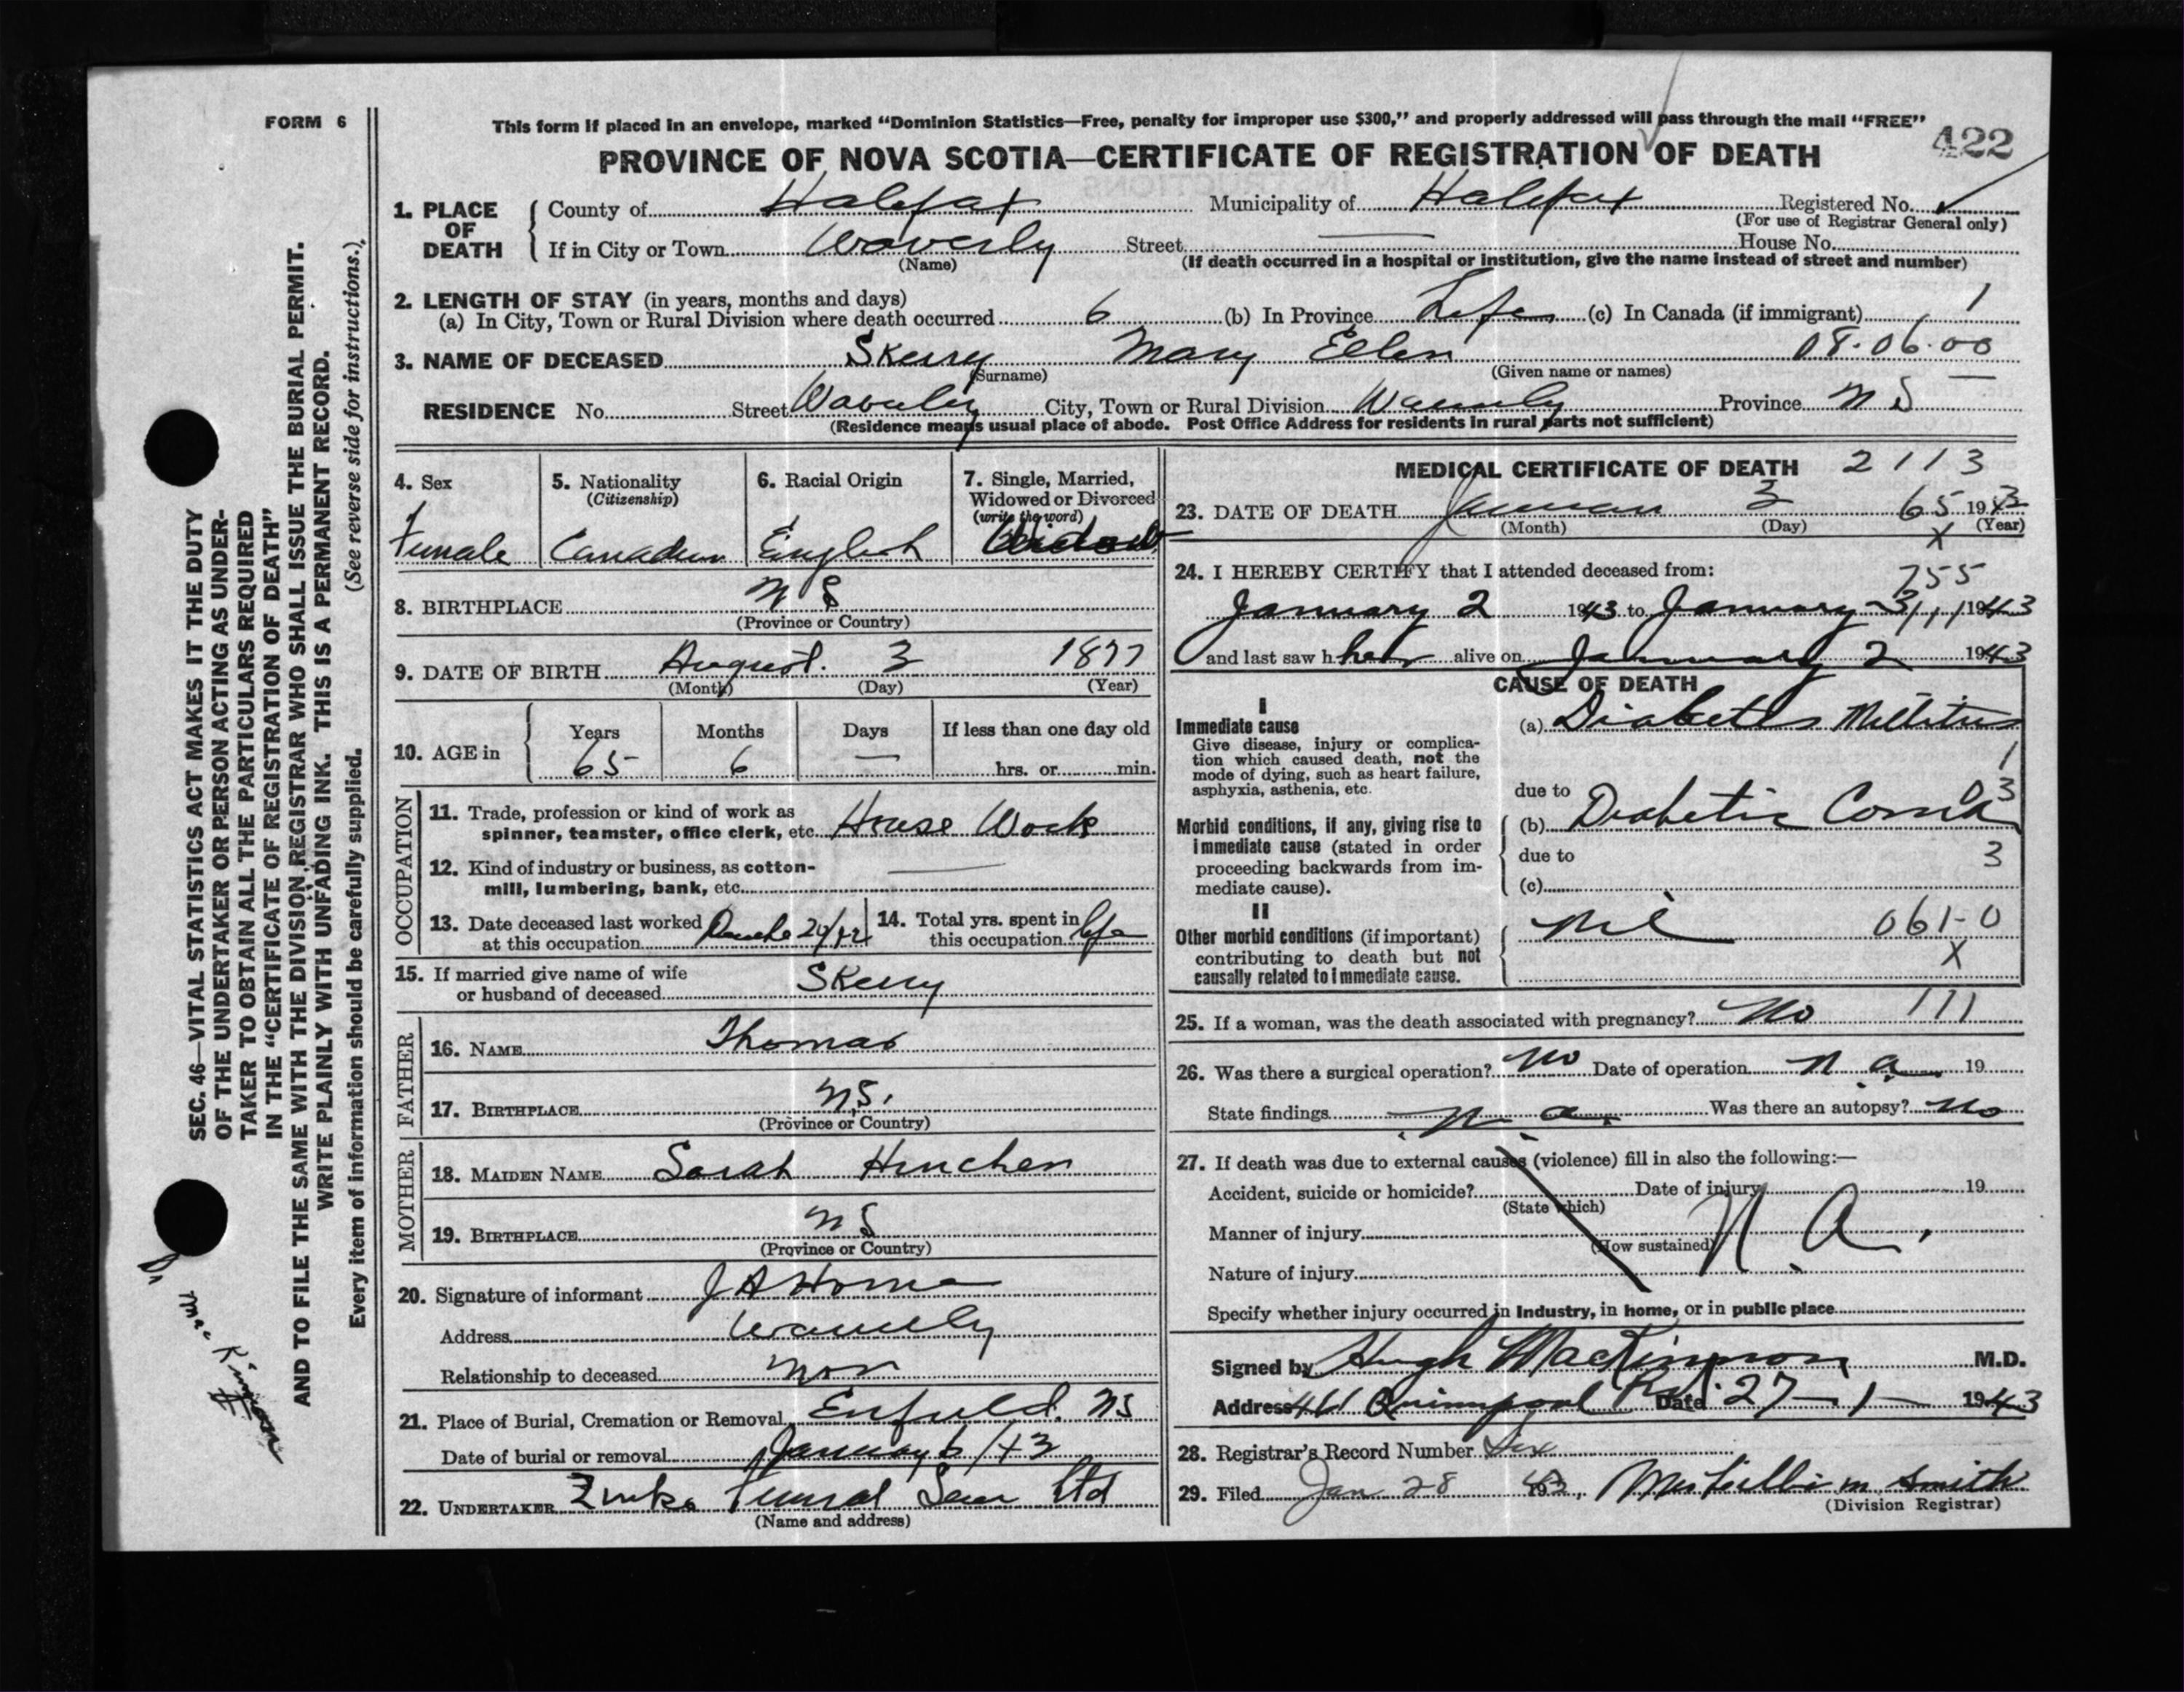 FORM 6
This form if placed in an envelope, marked “Dominion Statistics—Free, penalty for improper use $300,” and properly addressed will pass through the mail “FREE”
422
PROVINCE OF NOVA SCOTIA—CERTIFICATE OF REGISTRATION OF DEATH
1. PLACE OF DEATH
County of Halifax Municipality of Halifax Registered No.
(For use of Registrar General only)
If in City or Town Waverly Street — House No.
(Name) (If death occurred in a hospital or institution, give the name instead of street and number)
2. LENGTH OF STAY (in years, months and days)
(a) In City, Town or Rural Division where death occurred 6 (b) In Province Life (c) In Canada (if immigrant) 1
3. NAME OF DECEASED Skerry Mary Ellen 08.06.00
(Surname) (Given name or names)
RESIDENCE No. Street Waverley City, Town or Rural Division Waverly Province N S
(Residence means usual place of abode. Post Office Address for residents in rural parts not sufficient)
4. Sex
Female
5. Nationality
(Citizenship)
Canadian
6. Racial Origin
English
7. Single, Married,
Widowed or Divorced
(write the word)
Widow
8. BIRTHPLACE N S
(Province or Country)
9. DATE OF BIRTH August. 3 1877
(Month) (Day) (Year)
10. AGE in
Years Months Days If less than one day old
65 6 — hrs. or min.
OCCUPATION
11. Trade, profession or kind of work as
spinner, teamster, office clerk, etc. House Work
12. Kind of industry or business, as cotton-
mill, lumbering, bank, etc. —
13. Date deceased last worked
at this occupation
14. Total yrs. spent in
this occupation life
15. If married give name of wife
or husband of deceased Skerry
FATHER
16. NAME Thomas
17. BIRTHPLACE N.S.
(Province or Country)
MOTHER
18. MAIDEN NAME Sarah Hinchen
19. BIRTHPLACE N S
(Province or Country)
20. Signature of informant J A Horne
Address Waverly
Relationship to deceased non
21. Place of Burial, Cremation or Removal Enfield. N S
Date of burial or removal January 6/43
22. UNDERTAKER Funeral Ltd
(Name and address)
MEDICAL CERTIFICATE OF DEATH 2113
23. DATE OF DEATH January 3 65 1943
(Month) (Day) (Year)
X
24. I HEREBY CERTIFY that I attended deceased from:
255
January 2 1943 to January 3 1943
and last saw h her alive on January 2 1943
CAUSE OF DEATH
I
Immediate cause
Give disease, injury or complica-
tion which caused death, not the
mode of dying, such as heart failure,
asphyxia, asthenia, etc.
(a) Diabetes Mellitus
1
due to
03
Morbid conditions, if any, giving rise to
immediate cause (stated in order
proceeding backwards from im-
mediate cause).
(b) Diabetic Coma
due to 3
(c)
II
Other morbid conditions (if important)
contributing to death but not
causally related to immediate cause.
Nil 061-0
X
25. If a woman, was the death associated with pregnancy? No 111
26. Was there a surgical operation? No Date of operation N. a. 19
State findings N. a. Was there an autopsy? No
27. If death was due to external causes (violence) fill in also the following:—
Accident, suicide or homicide? Date of injury 19
(State which)
Manner of injury N. A.
(How sustained)
Nature of injury
Specify whether injury occurred in Industry, in home, or in public place
Signed by Hugh MacKinnon M.D.
Address 461 Quinpool Rd. Date 27-1- 1943
28. Registrar's Record Number Six
29. Filed Jan 28 1943, m Smith
(Division Registrar)
SEC. 46—VITAL STATISTICS ACT MAKES IT THE DUTY
OF THE UNDERTAKER OR PERSON ACTING AS UNDER-
TAKER TO OBTAIN ALL THE PARTICULARS REQUIRED
IN THE “CERTIFICATE OF REGISTRATION OF DEATH”
AND TO FILE THE SAME WITH THE DIVISION REGISTRAR WHO SHALL ISSUE THE BURIAL PERMIT.
WRITE PLAINLY WITH UNFADING INK. THIS IS A PERMANENT RECORD.
(See reverse side for instructions.)
Every item of information should be carefully supplied.